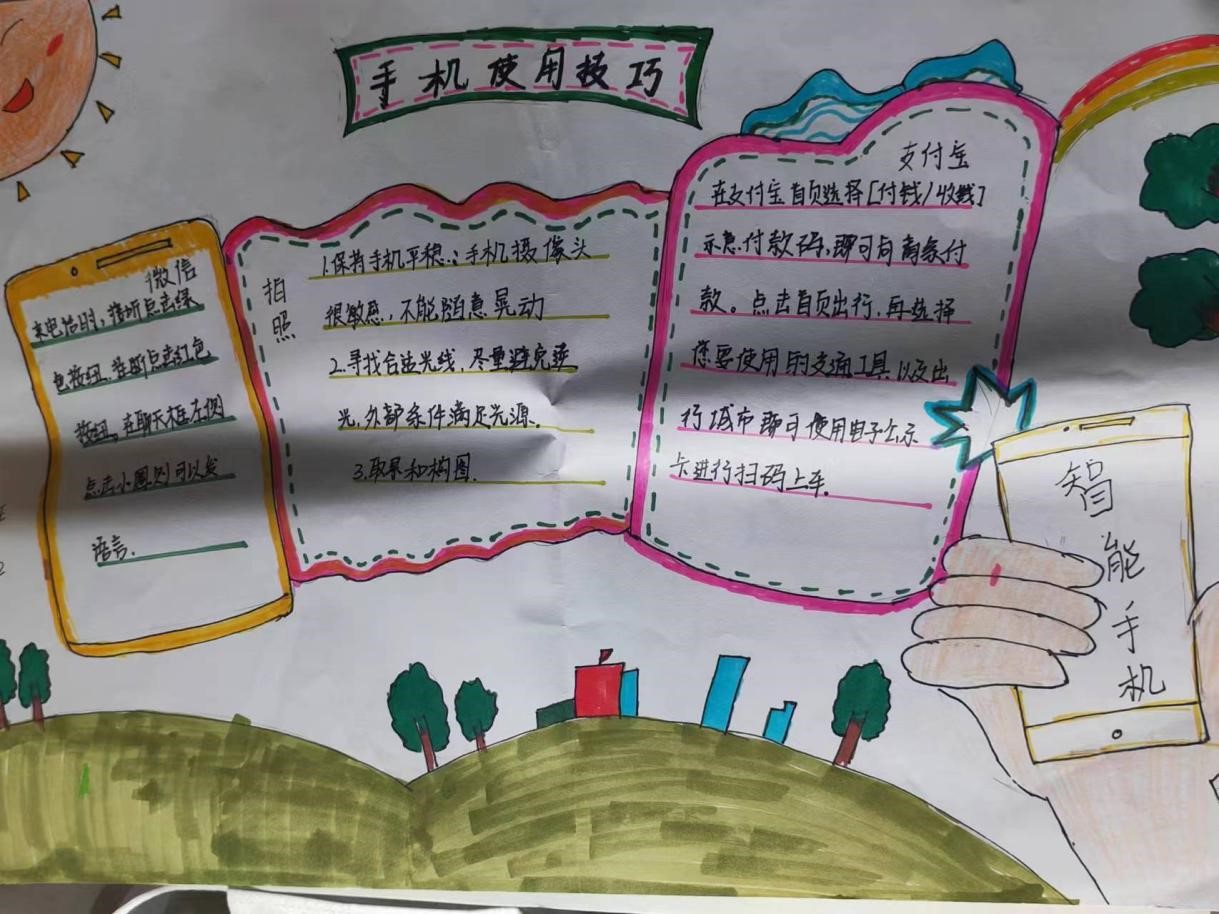 手机使用技巧
微信
来电话时，接听点击绿
色按钮，挂断点击红色
按钮。在聊天框左侧
点击小圈则可以发
语言.
拍照
1.保持手机平稳.：手机摄像头
很敏感，不能随意晃动
2.寻找合适光线，尽量避免逆
光，外部条件满足光源。
3.取景和构图.
支付宝
在支付宝首页选择[付钱/收钱]
示意付款码，即可向商家付
款。点击首页出行，再选择
您要使用的交通工具以及出
行城市即可使用电子公示
卡进行扫码上车.
智能手机